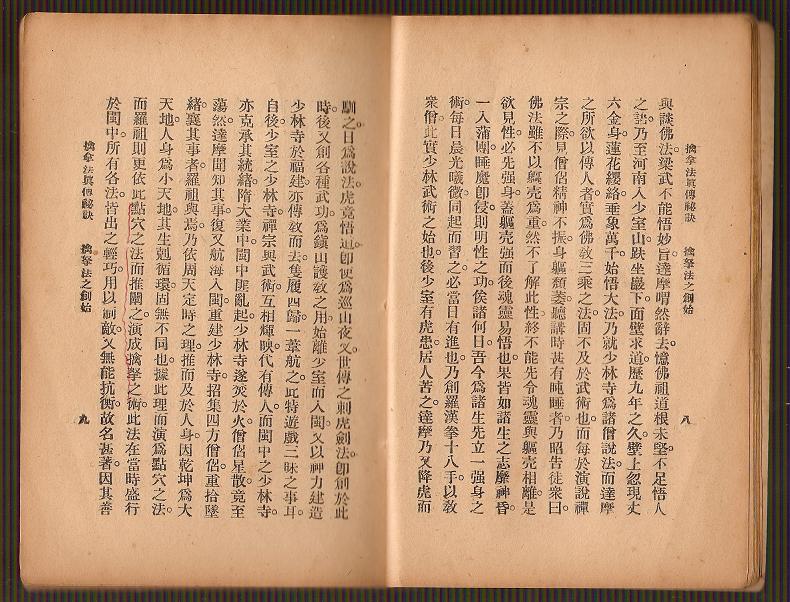 擒拿法眞傳秘訣　擒拏法之創始　八
與談佛法。梁武不能悟妙旨。達摩喟然辭去。憶佛祖道根未堅。不足悟人
之語。乃至河南入少室山。趺坐巖下。面壁求道。歷九年之久。壁上忽現丈
六金身。蓮花纓絡。垂象萬千。始悟大法。乃就少林寺爲諸僧說法。而達摩
之所欲以傳人者。實爲佛敎三乘之法。固不及於武術也。而每於演說禪
宗之際。見僧侶精神不振。身軀頹萎。聽講時甚有盹睡者。乃昭吿徒衆曰。
佛法雖不以軀壳爲重。然不了解此性。終不能先令魂靈與軀壳相離。是
欲見性。必先强身。蓋軀壳强而後魂靈易悟也。果皆如諸生之志靡神昏。
一入蒲團。睡魔卽侵。則明性之功。俟諸何日。吾今爲諸生先立一强身之
術。每日晨光曦微。同起而習之。必當日有進也。乃創羅漢拳十八手以敎
衆僧。此實少林武術之始也。後少室有虎患。居人苦之。達摩乃又降虎而
馴之。日爲說法。虎竟悟道。卽使爲巡山夜叉。世傳之刺虎劍法。卽創於此
時。後又創各種武功。爲鎭山護敎之用。始離少室而入閩。又以神力建造
少林寺於福建。亦傳敎而去。隻履西歸。一葦航之。此特遊戲三昧之事耳。
自後少室之少林寺。禪宗與武術。互相輝映。代有傳人。而閩中之少林寺。
亦克承其統緖。隋大業中。閩中匪亂起。少林寺遂災於火。僧侶星散。竟至
蕩然。達摩聞知其事。復又航海入閩。重建少林寺。招集四方僧侶。重拾墜
緖。襄其事者。羅祖與焉。乃依周天定時之理。推而及於人身。因乾坤爲大
天地。人身爲小天地。其生剋循環。固無不同也。據此理而演爲點穴之法。
而羅祖則更依此點穴之法而推闡之。演成擒拏之術。此法在當時盛行
於閩中。所有各法。皆出之輕巧。用以制敵。又無能抗衡。故名甚著。因其善
擒拿法眞傳秘訣　擒拏法之創始　九